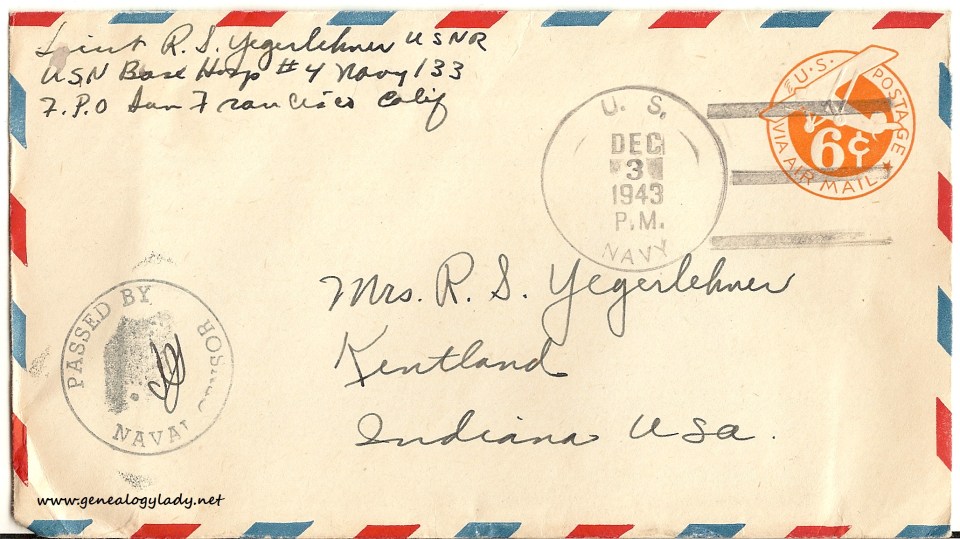 Lieut R. S. Yegerlehner USNR
USN Base Hosp #4 Navy 133
F.P.O San Francisco Calif
U. S.
DEC
3
1943
P.M.
NAVY
U.S. POSTAGE
6¢
VIA AIR MAIL
Mrs. R. S. Yegerlehner
Kentland
Indiana USA.
PASSED BY
NAVAL
www.genealogylady.net